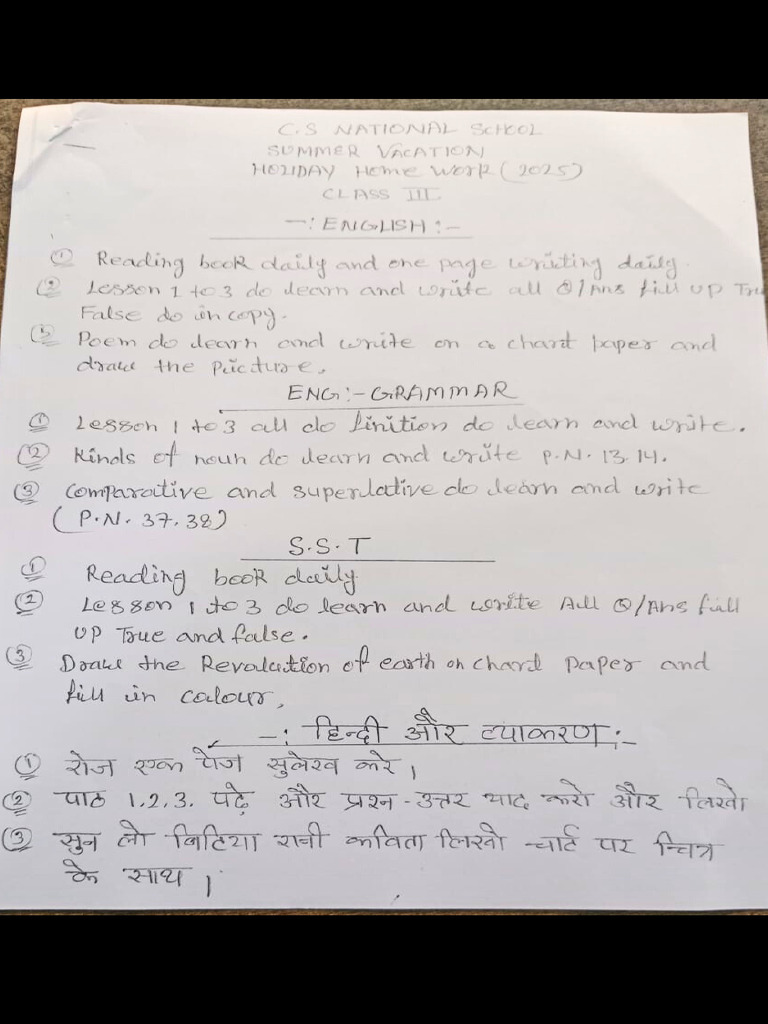 C.S NATIONAL SCHOOL
SUMMER VACATION
HOLIDAY Home Work (2025)
CLASS III
-: ENGLISH :-
① Reading book daily and one page writing daily.
② Lesson 1 to 3 do learn and write all Q/Ans fill up True
False do in copy.
③ Poem do learn and write on a chart paper and
draw the picture.
ENG :- GRAMMAR
① Lesson 1 to 3 all do finition do learn and write.
② Kinds of noun do learn and write P.N. 13.14.
③ Comparative and superlative do learn and write
(P.N. 37.38)
S.S.T
① Reading book daily
② Lesson 1 to 3 do learn and write All Q/Ans fill
UP True and false.
③ Draw the Revolution of earth on chard paper and
fill in colour,
-: हिन्दी और व्याकरण :-
① रोज एक पेज सुलेख करे।
② पाठ 1.2.3. पढ़े और प्रश्न-उत्तर याद करो और लिखो
③ सुन लो बिटिया रानी कविता लिखो चार्ट पर चित्र
के साथ।